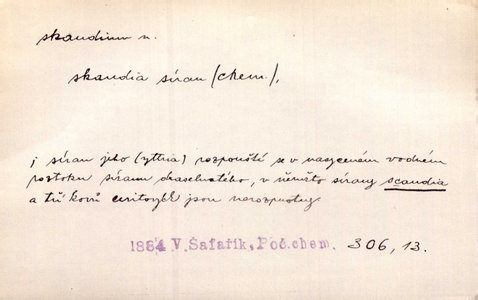 skandium n.
skandia síran (chem.),
; síran jeho (yttria) rozpouští se v nasyceném vodném
roztoku síranu draselnatého, v němžto sírany scandia
a tří kovů ceritových jsou nerozpustny.
1884 V. Šafařík, Poč. chem. 306, 13.